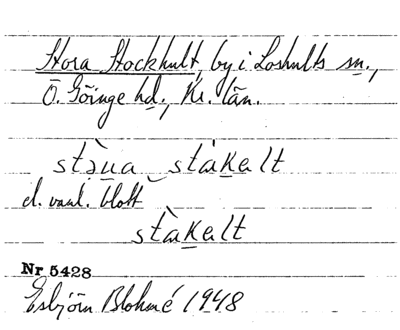 Stora Stockhult, by i Loshults sn.,
Ö. Göinge hd., Kr. län.
stə̀ua stàkalt
el. vanl. blott
stàkalt
Nr 5428
Esbjörn Blohmé 1948